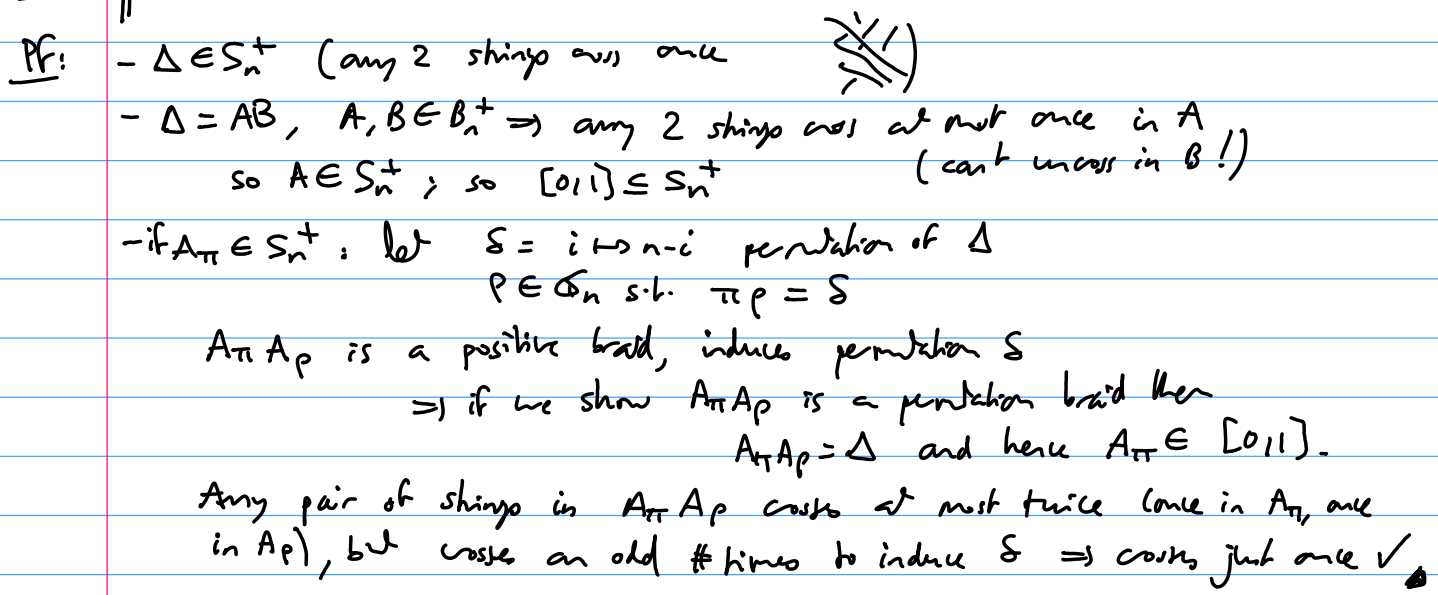 Pf: - Δ ∈ Sₙ⁺ (any 2 strings cross once )
- Δ = AB, A, B ∈ Bₙ⁺ ⇒ any 2 strings cross at most once in A
(can't uncross in B!)
so A ∈ Sₙ⁺; so [0,1] ⊆ Sₙ⁺
- if A_π ∈ Sₙ⁺: let δ = i ↦ n-i permutation of Δ
ρ ∈ 𝔖ₙ s.t. πρ = δ
A_π A_ρ is a positive braid, induces permutation δ
⇒ if we show A_π A_ρ is a permutation braid then
A_π A_ρ = Δ and hence A_π ∈ [0,1].
Any pair of strings in A_π A_ρ crosses at most twice (once in A_π, once
in A_ρ), but crosses an odd # times to induce δ ⇒ crosses just once ✓